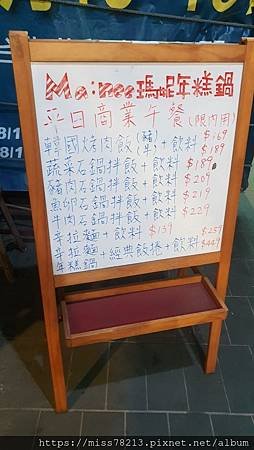 Me:nee瑪妮年糕鍋
平日商業午餐(限內用)
韓國烤肉飯(豬 牛)+飲料 $169 $189
蔬菜石鍋拌飯+飲料 $189
豬肉石鍋拌飯+飲料 $209
魚卵石鍋拌飯+飲料 $219
牛肉石鍋拌飯+飲料 $229
辛拉麵+飲料 $139
辛拉麵
年糕鍋+經典飯捲+飲料 $259 $449
https://miss78213.pixnet.net/album